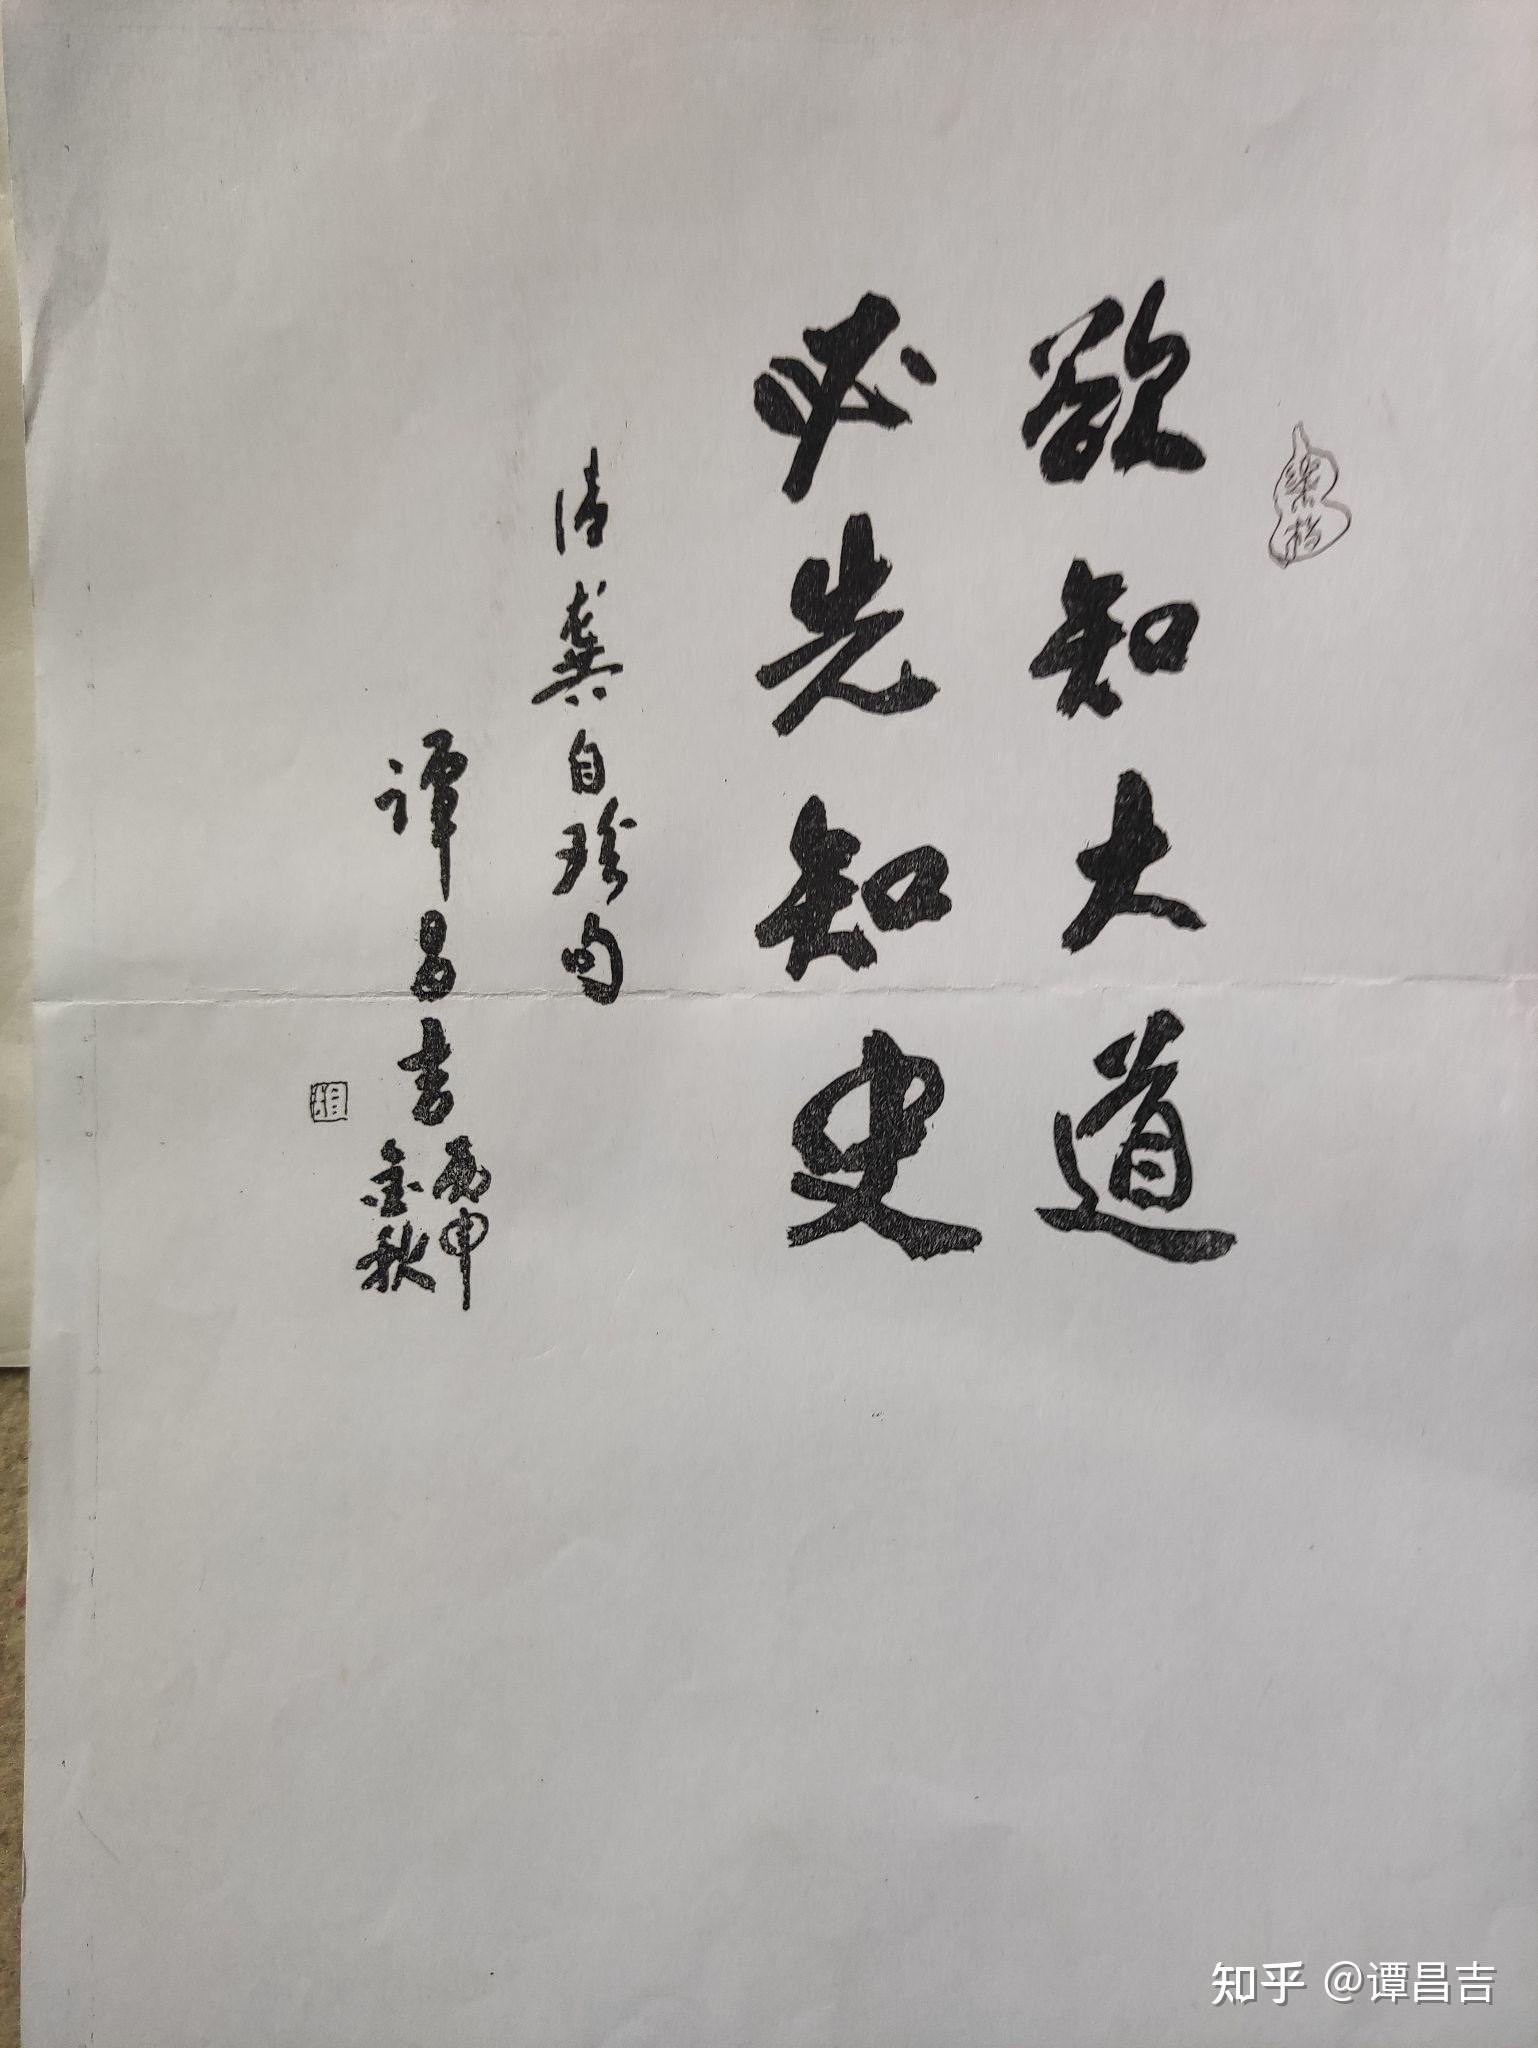 欲知大道
必先知史
清龚自珍句
谭昌吉
丙申
金秋
知乎 @谭昌吉